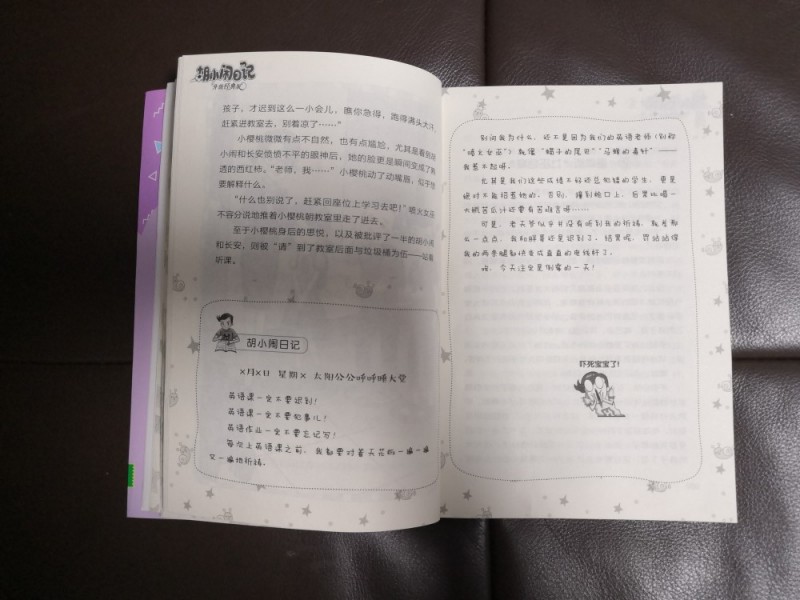 胡小闹日记
孩子，才迟到这么一小会儿，瞧你急得，跑得满头大汗，
赶紧进教室去，别着凉了……”
小樱桃微微有点不自然，也有点尴尬，尤其是看到胡
小闹和长安愤愤不平的眼神后，她的脸更是瞬间变成了熟
透的西红柿。“老师，我……”小樱桃动了动嘴唇，似乎想
要解释什么。
“什么也别说了，赶紧回座位上学习去吧！”喷火女巫
不容分说地推着小樱桃朝教室里走了进去。
至于小樱桃身后的思悦，以及被批评了一半的胡小闹
和长安，则被“请”到了教室后面与垃圾桶为伍——站着
听课。
胡小闹日记
×月×日 星期× 太阳公公呼呼睡大觉
英语课一定不要迟到！
英语课一定不要犯事儿！
英语作业一定不要忘记写！
每次上英语课之前，我都要对着天花板一遍一遍
又一遍地祈祷。
别问我为什么，还不是因为我们的英语老师（别称
“喷火女巫”）就像“蝎子的尾巴”“马蜂的毒针”——
我惹不起呀。
尤其是我们这些成绩不好还总犯错的学生，更是
绝对不能招惹她的。否则，撞到枪口上，后果比喝一
大瓢苦瓜汁还要有苦难言呀……
可是，老天爷似乎并没有听到我的祈祷，就差那
么一点点，我和胖墩还是迟到了。结果呢，罚站站得
我的两条腿都快变成直直的电线杆了。
唉，今天注定是倒霉的一天！
吓死宝宝了！